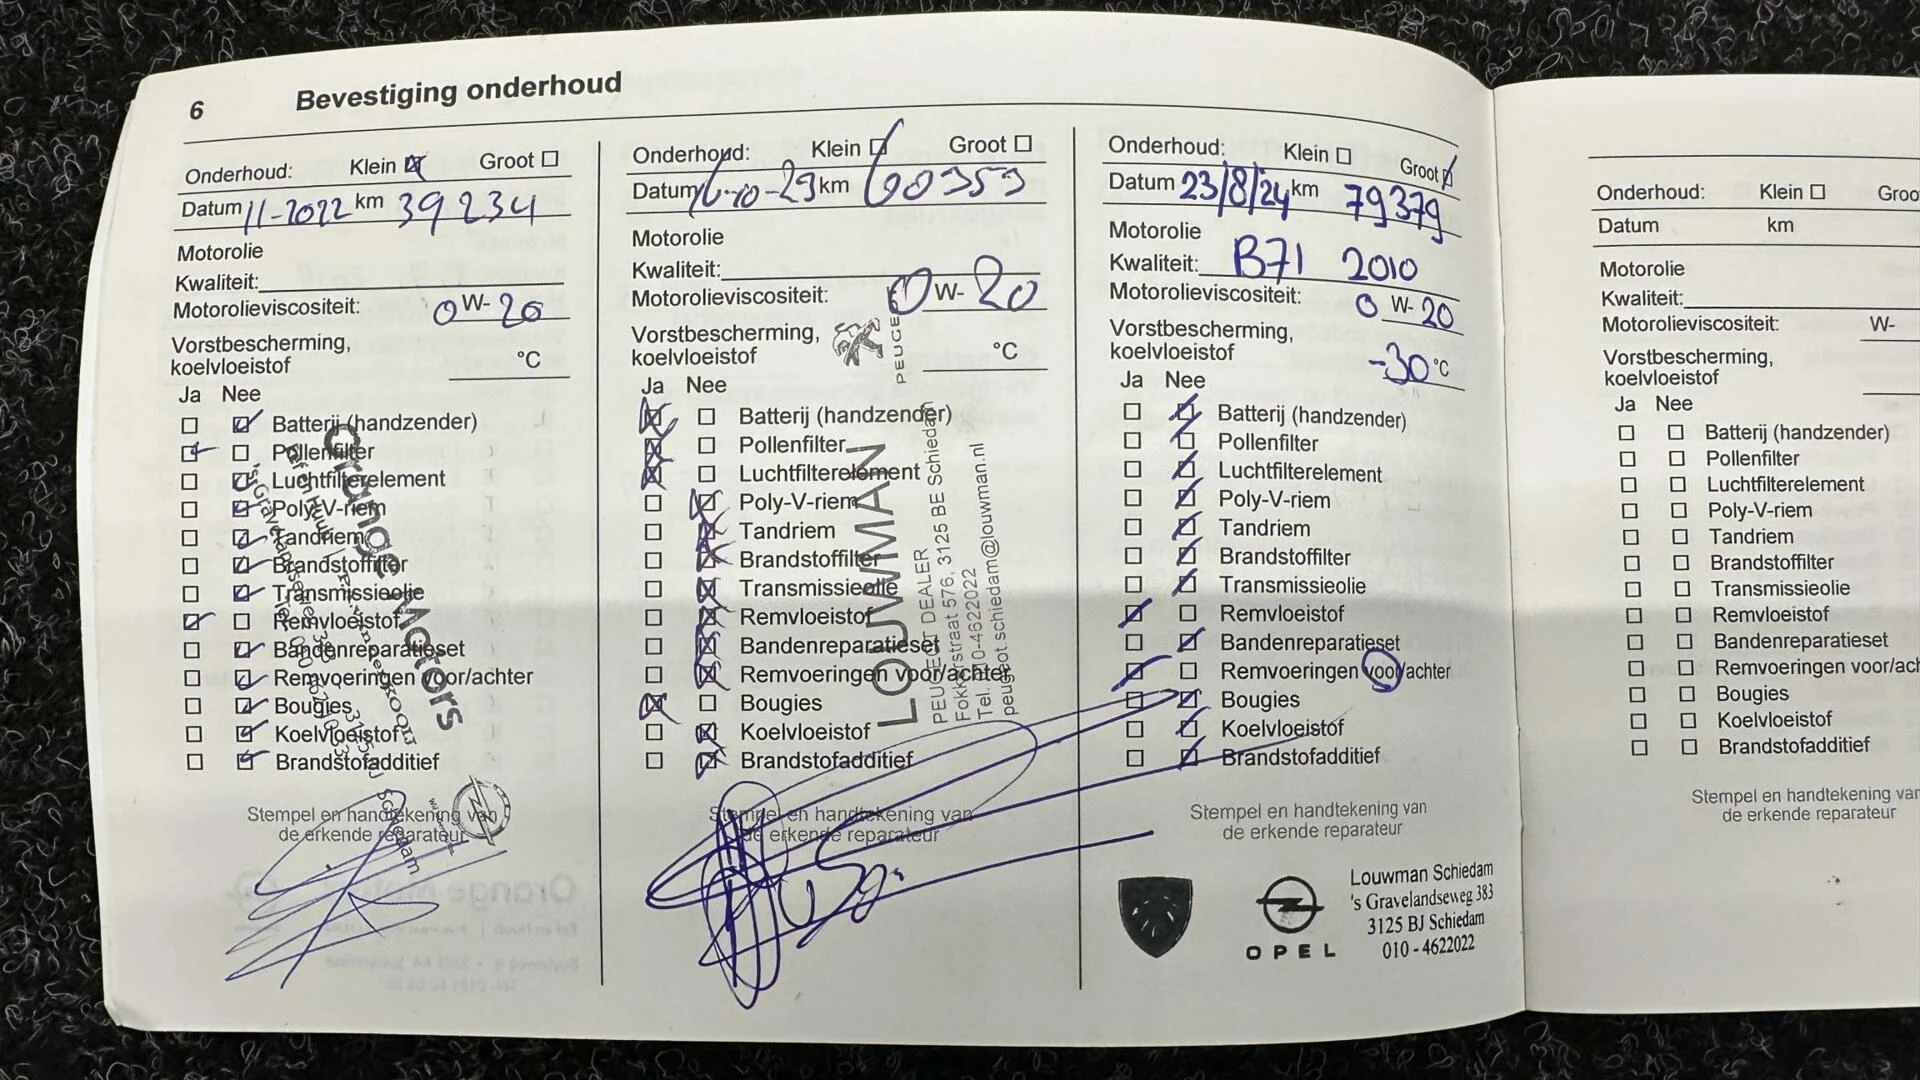 6 Bevestiging onderhoud
Onderhoud: Klein Groot
Datum 11-2022 km 39234
Motorolie
Kwaliteit:
Motorolieviscositeit: 0 W- 20
Vorstbescherming,
koelvloeistof °C
Ja Nee
Batterij (handzender)
Pollenfilter
Luchtfilterelement
Poly-V-riem
Tandriem
Brandstoffilter
Transmissieolie
Remvloeistof
Bandenreparatieset
Remvoeringen voor/achter
Bougies
Koelvloeistof
Brandstofadditief
Stempel en handtekening van
de erkende reparateur
Orange Motors
Onderhoud: Klein Groot
Datum 16-10-23 km 60353
Motorolie
Kwaliteit:
Motorolieviscositeit: 0 W- 20
Vorstbescherming,
koelvloeistof °C
Ja Nee
Batterij (handzender)
Pollenfilter
Luchtfilterelement
Poly-V-riem
Tandriem
Brandstoffilter
Transmissieolie
Remvloeistof
Bandenreparatieset
Remvoeringen voor/achter
Bougies
Koelvloeistof
Brandstofadditief
Stempel en handtekening van
de erkende reparateur
PEUGEOT
LOUWMAN
PEUGEOT DEALER
Fokkerstraat 576, 3125 BE Schiedam
Tel. 010-4622022
peugeot.schiedam@louwman.nl
Onderhoud: Klein Groot
Datum 23/8/24 km 79379
Motorolie
Kwaliteit: B71 2010
Motorolieviscositeit: 0 W- 20
Vorstbescherming,
koelvloeistof -30 °C
Ja Nee
Batterij (handzender)
Pollenfilter
Luchtfilterelement
Poly-V-riem
Tandriem
Brandstoffilter
Transmissieolie
Remvloeistof
Bandenreparatieset
Remvoeringen voor/achter
Bougies
Koelvloeistof
Brandstofadditief
Stempel en handtekening van
de erkende reparateur
OPEL
Louwman Schiedam
's Gravelandseweg 383
3125 BJ Schiedam
010 - 4622022
Onderhoud: Klein Groo
Datum km
Motorolie
Kwaliteit:
Motorolieviscositeit: W-
Vorstbescherming,
koelvloeistof
Ja Nee
Batterij (handzender)
Pollenfilter
Luchtfilterelement
Poly-V-riem
Tandriem
Brandstoffilter
Transmissieolie
Remvloeistof
Bandenreparatieset
Remvoeringen voor/ach
Bougies
Koelvloeistof
Brandstofadditief
Stempel en handtekening var
de erkende reparateur